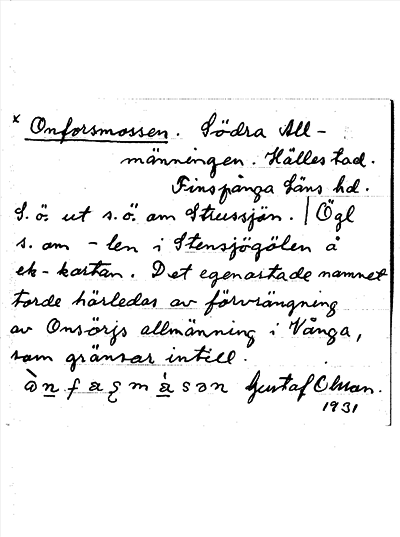 x Onforsmossen. Södra All-
männingen. Hällestad.
Finspånga läns hd.
S. ö. ut s. ö. om Strussjön. | Ögl
s. om - len i Stensjögölen å
ek-kartan. Det egenartade namnet
torde härledas av förvrängning
av Onsörjs allmänning i Vånga,
som gränsar intill.
Gustaf Olsson.
1931